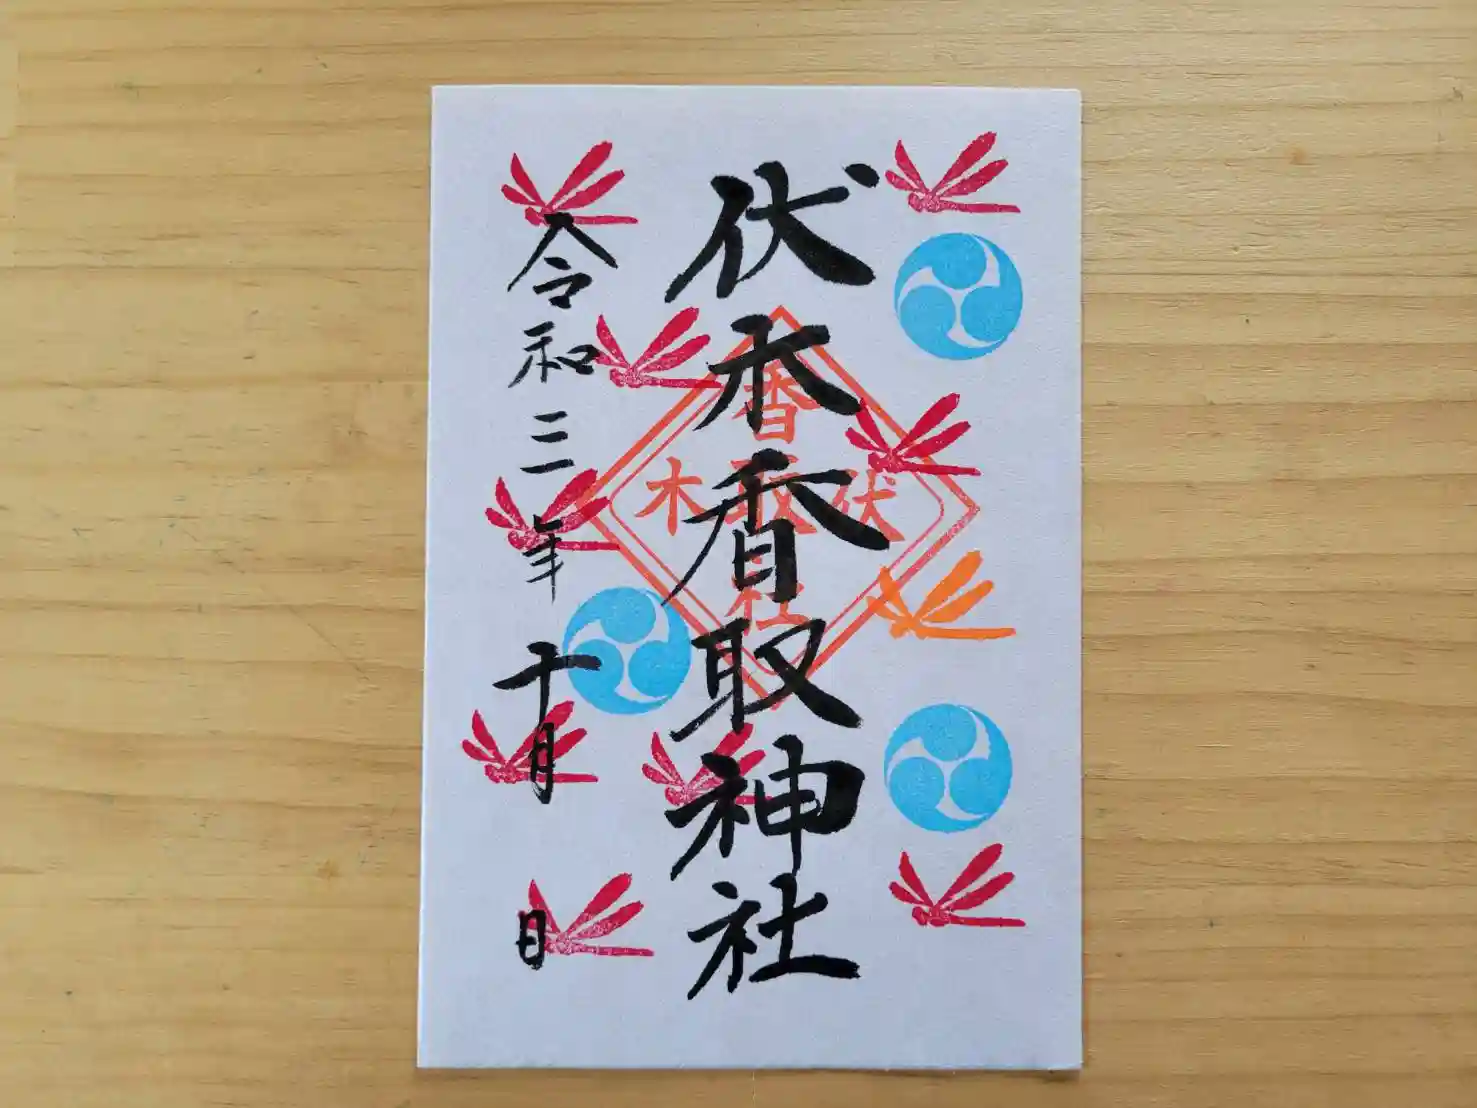 伏木香取神社
令和三年十月 日
香
伏取木
社